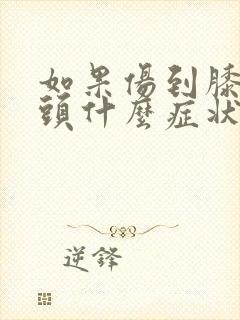 如果傷到膝
頭什麼症狀
逆鋒